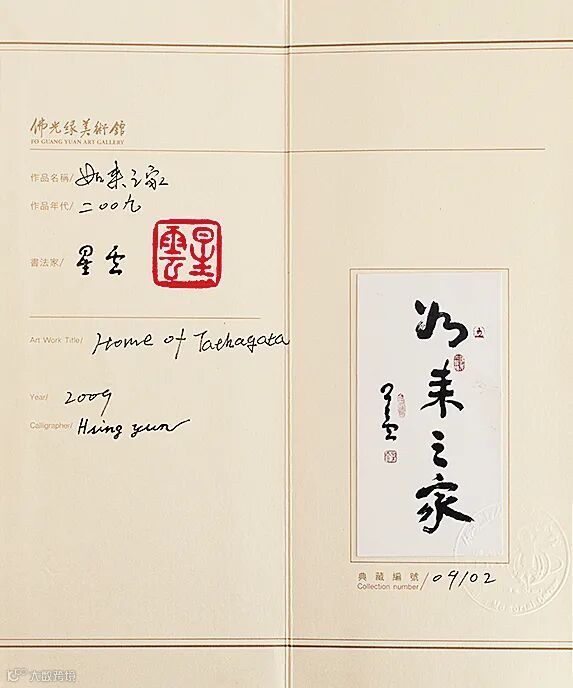 佛光緣美術館
FO GUANG YUAN ART GALLERY
作品名稱/ 如来之家
作品年代/ 二00九
書法家/ 星雲
星雲
Art Work Title/ Home of Tathagata
Year/ 2009
Calligrapher/ Hsing yun
如来之家
星雲
典藏編號/ 09102
Collection number/
大数跨境